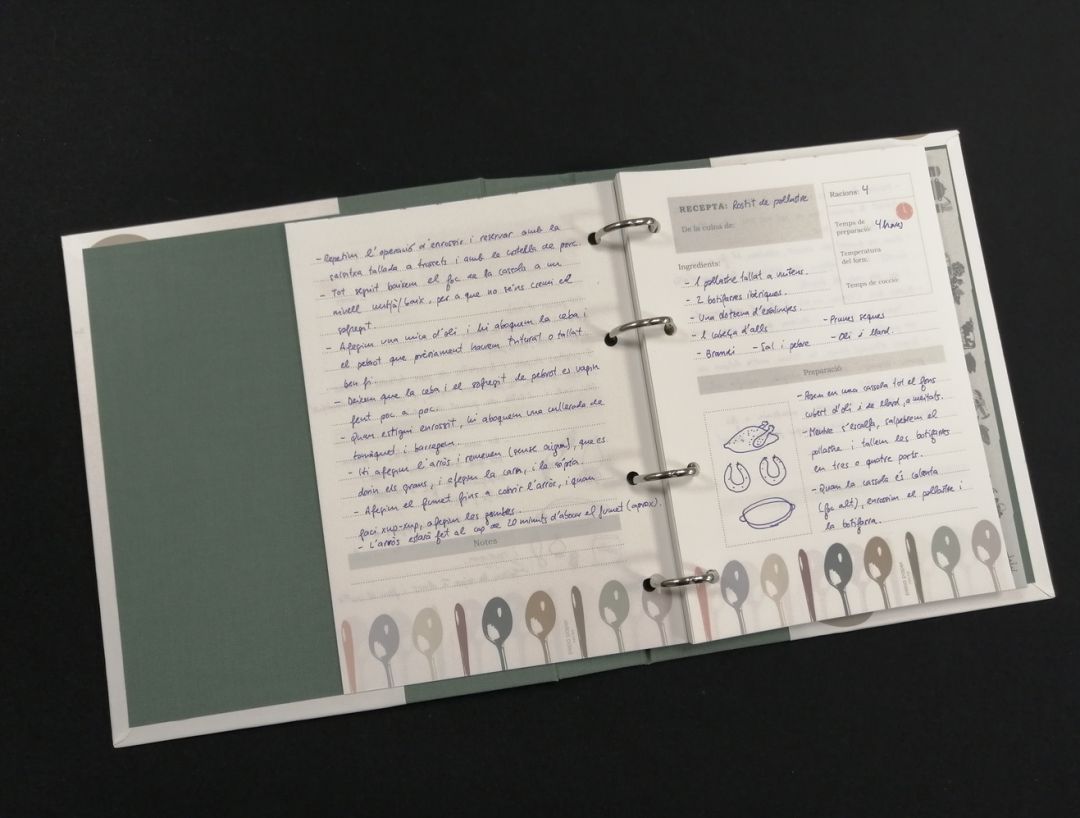 - Repetim l'operació d'enrossir i reservar amb la
salsitxa tallada a trossets i amb la costella de porc.
- Tot seguit baixem el foc de la cassola a un
nivell mitjà/baix, per a que no se'ns cremi el
sofregit.
- Afegim una mica d'oli i hi aboquem la ceba i
el pebrot que prèviament haurem triturat o tallat
ben fi.
- Deixem que la ceba i el sofregit de pebrot es vagin
fent poc a poc.
- Quan estigui enrossit, hi aboquem una cullerada de
tomàquet i barregem.
- Hi afegim l'arròs i remenem (sense aigua), que es
dorin els grans, i afegim la carn, i la sípia.
- Afegim el fumet fins a cobrir l'arròs, i quan
faci xup-xup, afegim les gambes.
- L'arròs estarà fet al cap de 20 minuts d'abocar el fumet (aprox).
Notes
RECEPTA: Rostit de pollastre
De la cuina de:
Racions: 4
Temps de
preparació: 4 hores
Temperatura
del forn:
Temps de cocció:
Ingredients:
- 1 pollastre tallat a vuitens.
- 2 botifarres ibèriques.
- Una dotzena d'escalunyes.
- 1 cabeça d'alls - Prunes seques
- Brandi - Sal i pebre - Oli i llard.
Preparació
- Posem en una cassola tot el fons
cobert d'oli i de llard, a meitats.
- Mentre s'escalfa, salpebrem el
pollastre i tallem les botifarres
en tres o quatre parts.
- Quan la cassola és calenta
(foc alt), enrossim el pollastre i
la botifarra.